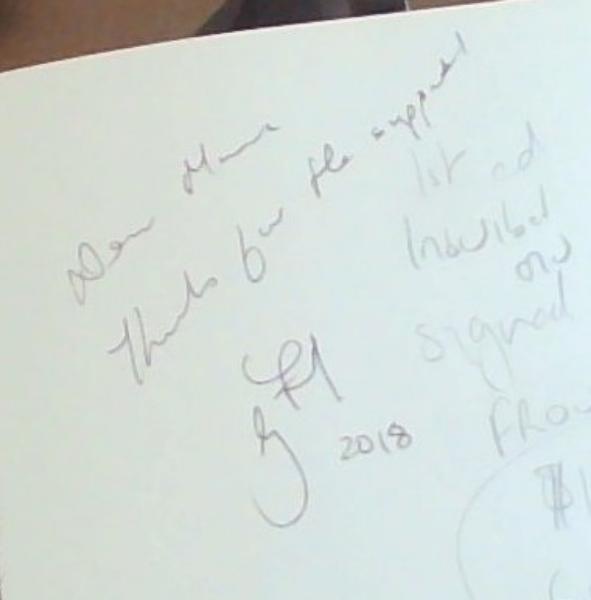 Dear
Thanks for the support
2018
1st ed
Inscribed
and
signed
From
$1